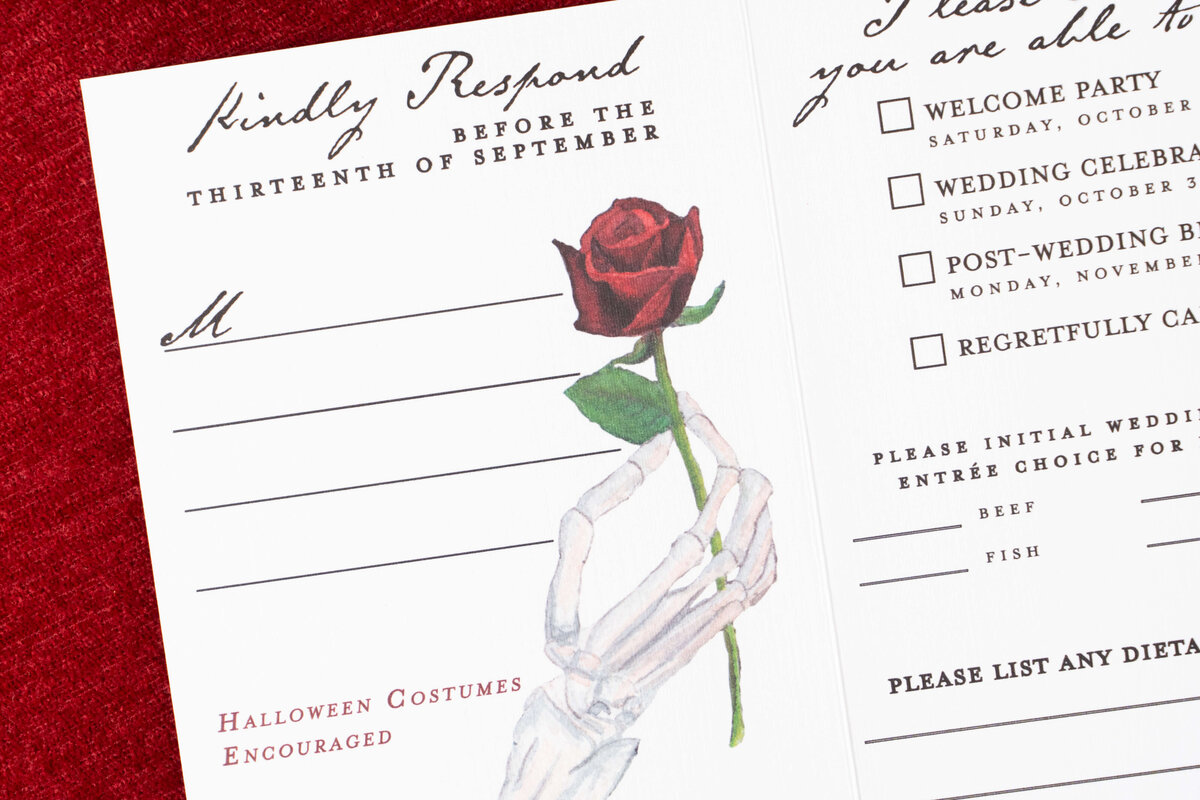 Kindly Respond
BEFORE THE
THIRTEENTH OF SEPTEMBER
M
HALLOWEEN COSTUMES
ENCOURAGED
Please
you are able to
WELCOME PARTY
SATURDAY, OCTOBER
WEDDING CELEBRA
SUNDAY, OCTOBER 3
POST-WEDDING B
MONDAY, NOVEMBER
REGRETFULLY CA
PLEASE INITIAL WEDDI
ENTRÉE CHOICE FOR
BEEF
FISH
PLEASE LIST ANY DIETA